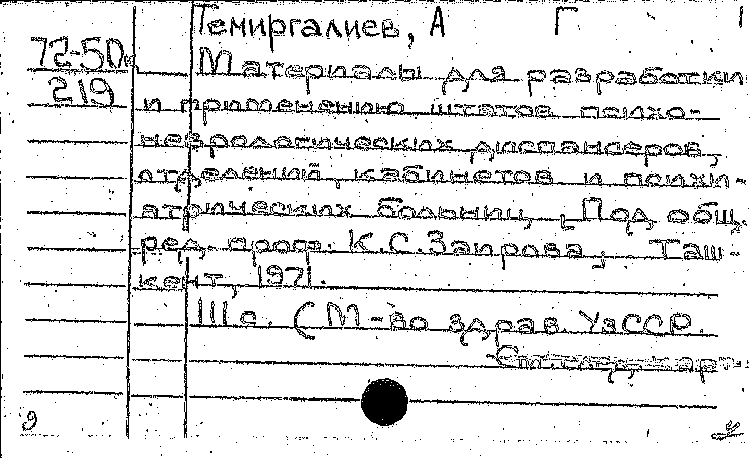 Темиргалиев, А Г 1
72-50
219
Материалы для разработки
и применению штатов психо-
неврологических диспансеров,
отделений, кабинетов и психи-
атрических больниц, Под общ.
ред. проф. К.С.Заирова; Таш-
кент, 1971.
111с. (М-во здрав. УзССР.
См.след.карт.
9